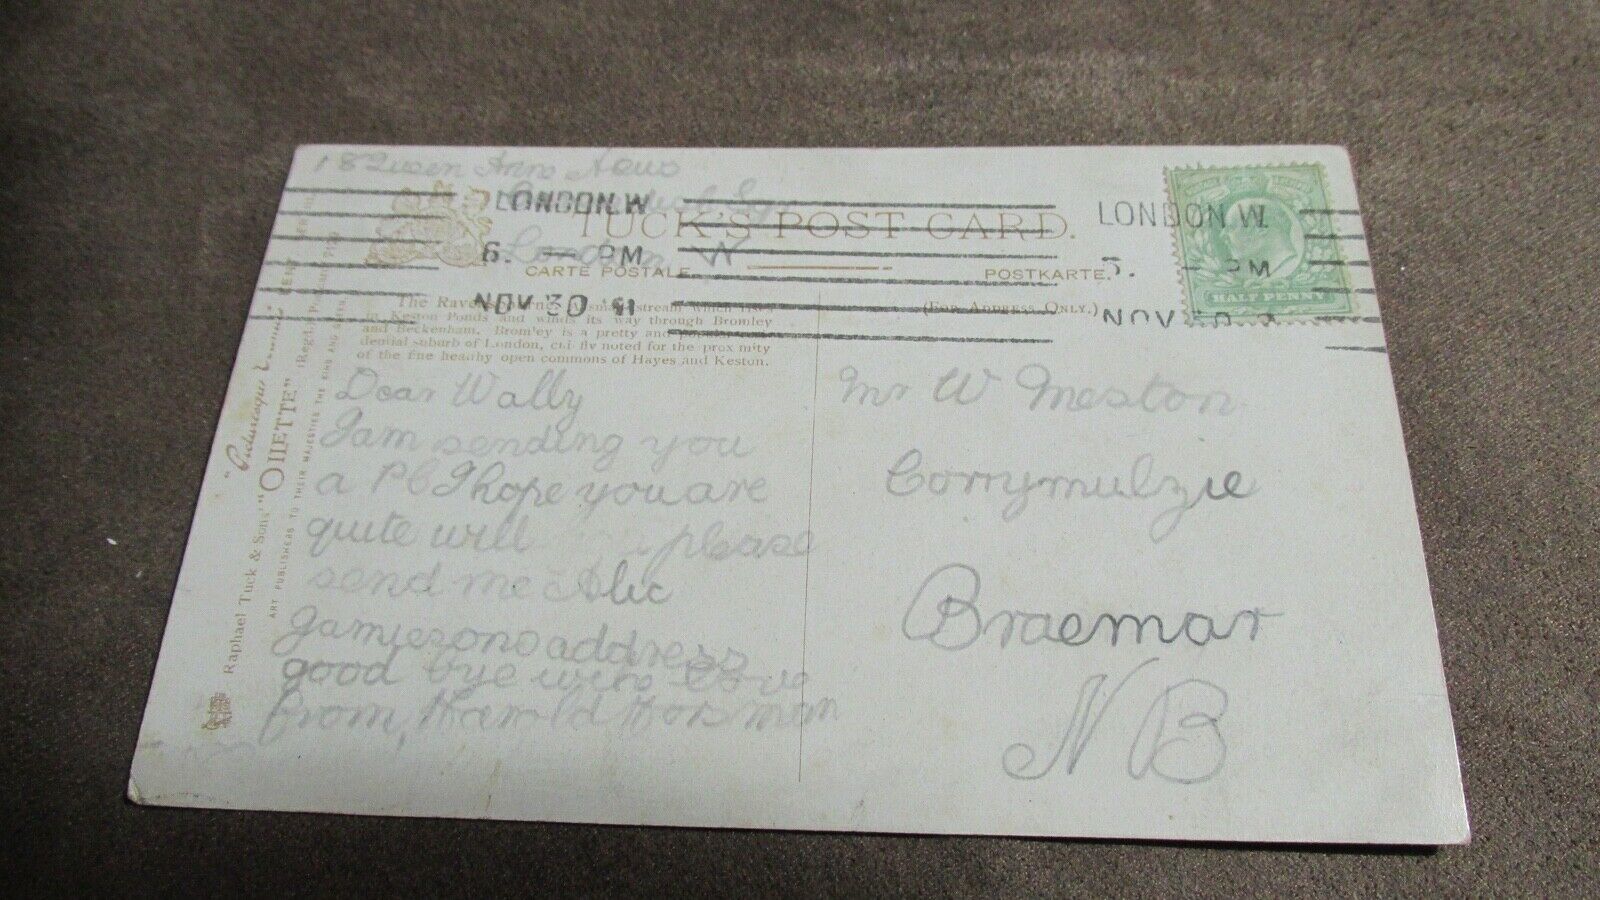 18 Queen Anns News
London W
LONDON.W
6. PM
NOV 30
LONDON.W.
5. PM
NOV 30
HALF PENNY
TUCK'S POST CARD.
CARTE POSTALE.
POSTKARTE.
(FOR ADDRESS ONLY.)
The Ravensbourne, a small stream which rises
in Keston Ponds and winds its way through Bromley
and Beckenham. Bromley is a pretty and
dential suburb of London, chiefly noted for the proximity
of the fine heathy open commons of Hayes and Keston.
Dear Wally
I am sending you
a PC I hope you are
quite will please
send me Alec
Jamiesons address
good bye with love
from Harold Horsman
Mr W Meston
Corrymulzie
Braemar
N B
"Picturesque Counties" KENT
Raphael Tuck & Sons' "OILETTE"
ART PUBLISHERS TO THEIR MAJESTIES THE KING AND QUEEN.